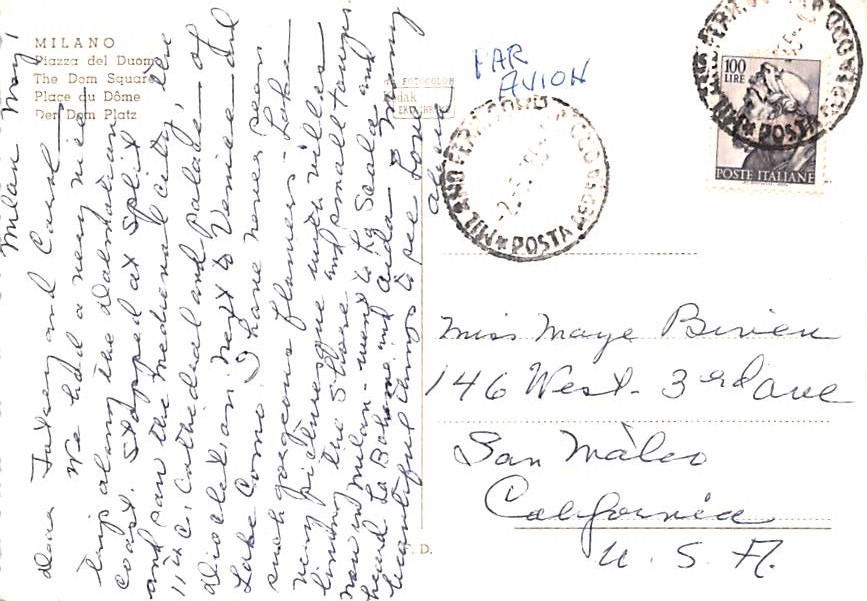 MILANO
Piazza del Duomo
The Dom Square
Place du Dôme
Der Dom Platz
FOTOCOLOR
Kodak
EKTACHROME
PAR
AVION
100
LIRE
POSTE ITALIANE
MILANO FERROVIA
POSTA AEREA
MILANO FERROVIA
POSTA AEREA
Milan May 1
Dear and Carol
We had a very nice
trip along the Dalmatian
coast. Stopped at Split
and saw the Medieval city, the
11th C. Cathedral and Palace of
Diocletian. Next to Venice and
Lake Como. I have never seen
such gorgeous flowers - Lake
very picturesque with villas
lining the shore and small towns.
Now in Milan - went to La Scala and
heard La Boheme and Aida. So many
beautiful things to see Love
Miss Maye Biven
146 West - 3rd ave
San Mateo
California
U. S. A.
F. D.